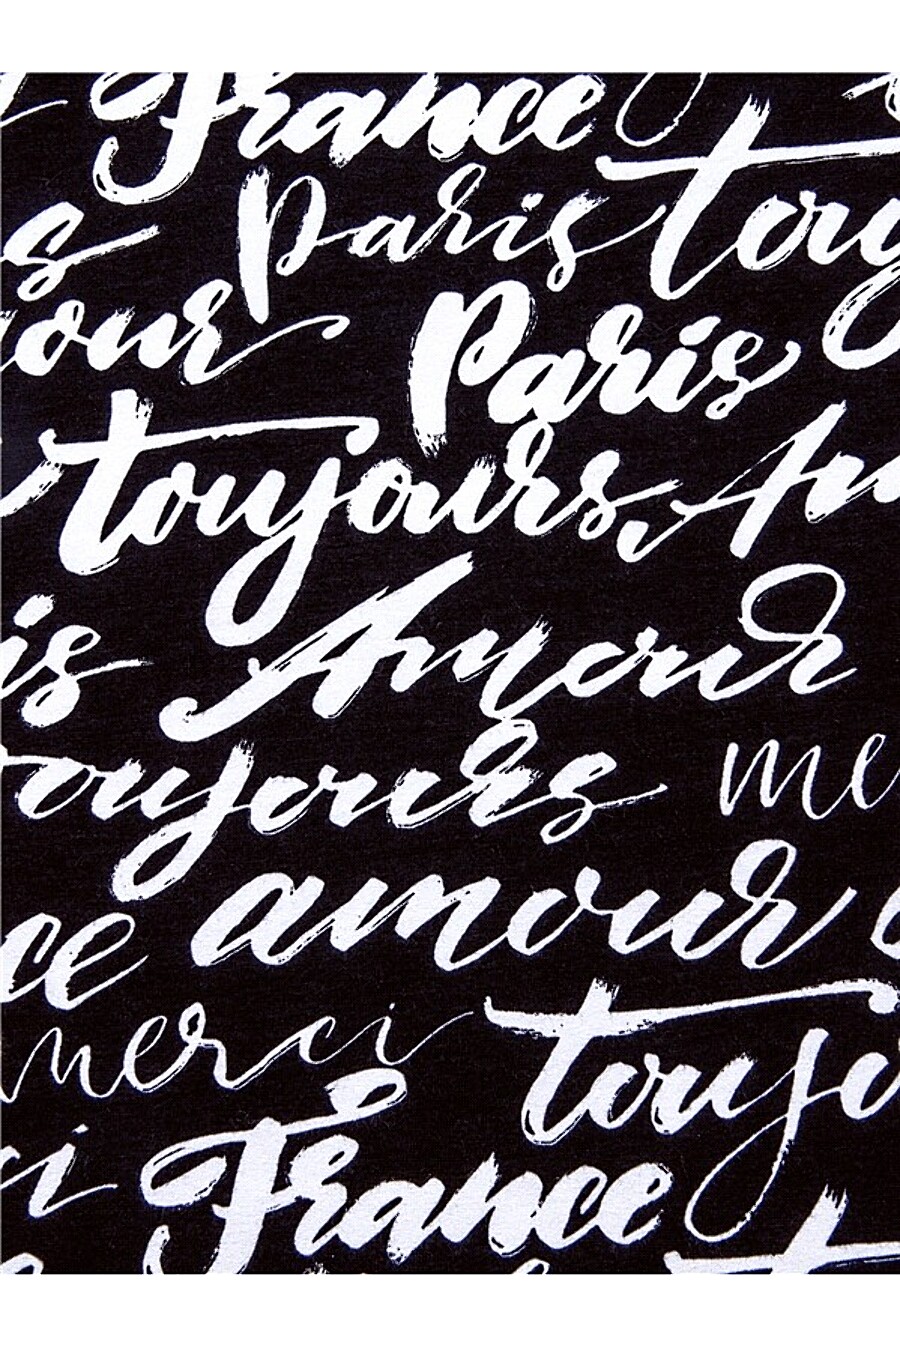 France
Paris touj
is
our Paris
toujours, Am
is Amour
toujours me
amour
ce
merci toujo
ci France